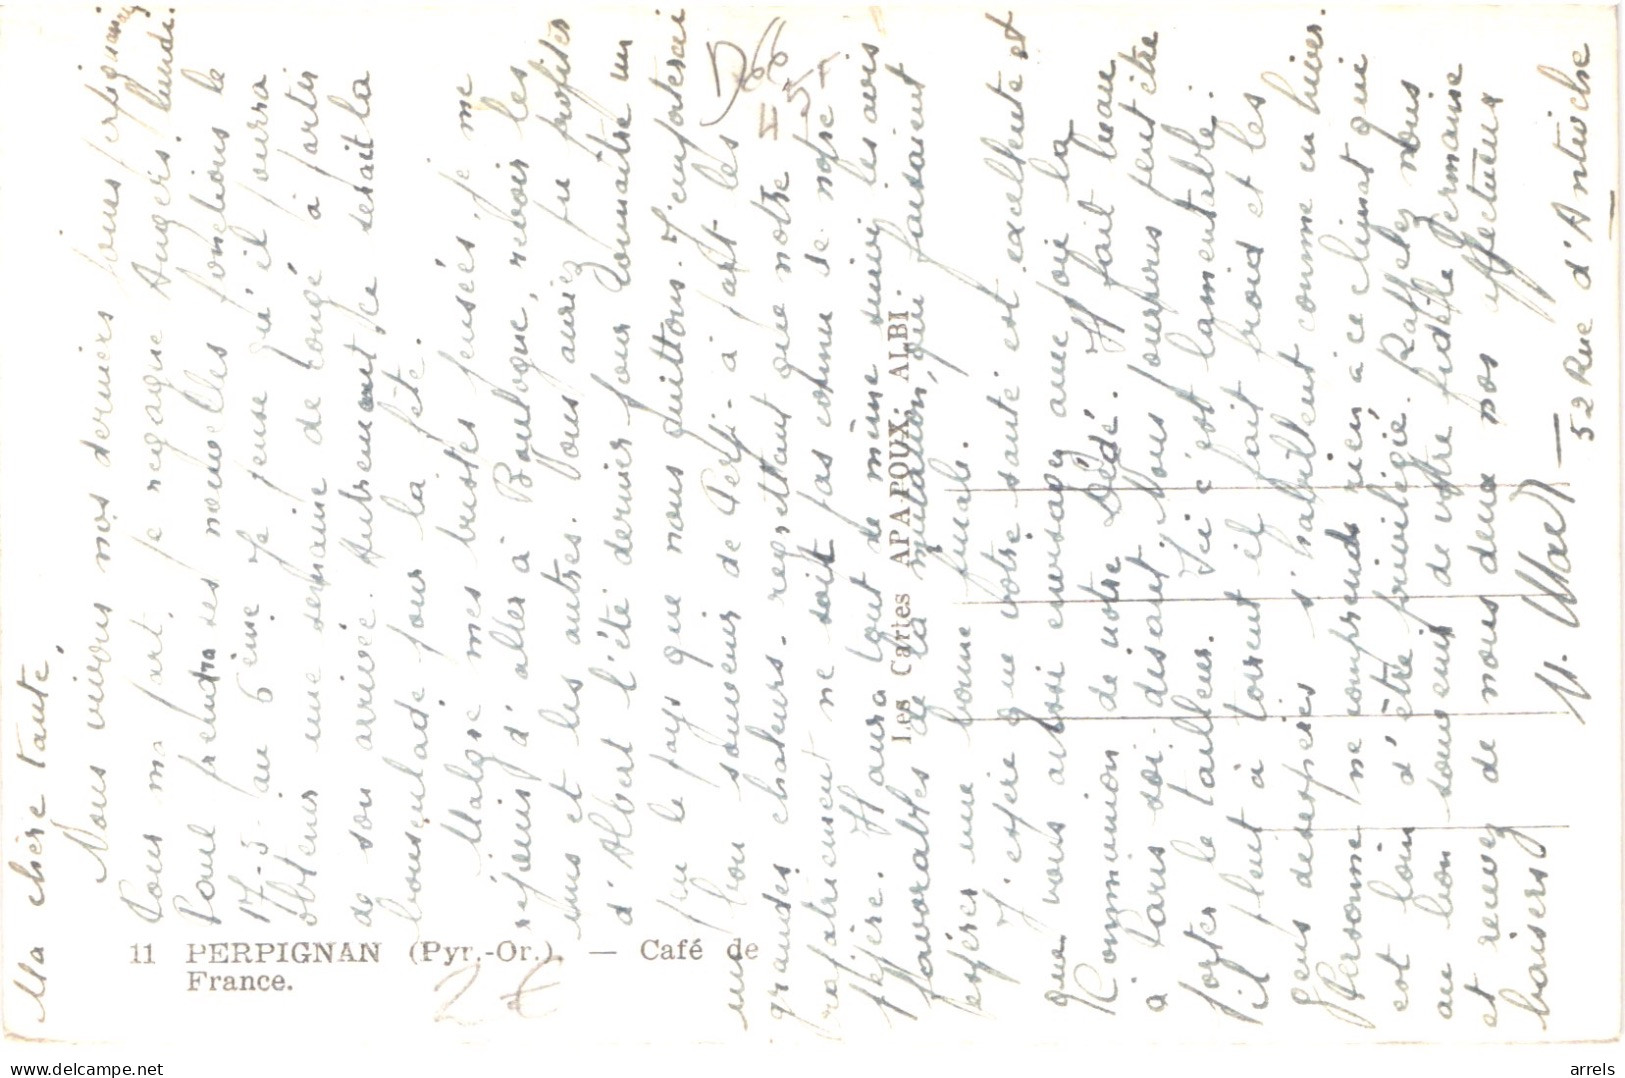 Ma chère tante,
Nous vivons nos derniers jours perpignanais
Pour ma part, je regagne Angers lundi.
Paul prendra ses nouvelles fonctions le
17-5- au 6ème je pense qu'il pourra
obtenir une semaine de congé à partir
de son arrivée. Autrement, ce serait la
bousculade pour la fête.
Malgré mes tristes pensées, je me
réjouis d'aller à Boulogne, revoir les
uns et les autres. Vous auriez pu profiter
d'Albert l'été dernier pour connaître un
peu le pays que nous quittons. J'emporterai
un bon souvenir de Perpi- à part les
grandes chaleurs. regrettant que notre
rapatriement ne soit pas comme de notre
pépère. Il aura tout de même suivi les avis
favorables de la mutation, qui faisaient
espérer une bonne finale.
J'espère que votre santé est excellente et
que vous aussi envisagez avec joie la
Communion de notre Dédé. Il fait beau
à Paris soi-disant. Nous pourrons peut être
porter le tailleur. Ici c'est lamentable.
il pleut à torrent il fait froid et les
gens désespérés s'habillent comme en hiver.
Personne ne comprends rien à ce climat qui
est loin d'être privilégié. Rappelez nous
au bon souvenir de votre fidèle Germaine
et recevez de nous deux nos affectueux
baisers
52 Rue d'Antioche
566
II 5F
11 PERPIGNAN (Pyr.-Or.). — Café de
France.
2 €
Les Cartes APA-POUX. ALBI.
www.delcampe.net
arrels